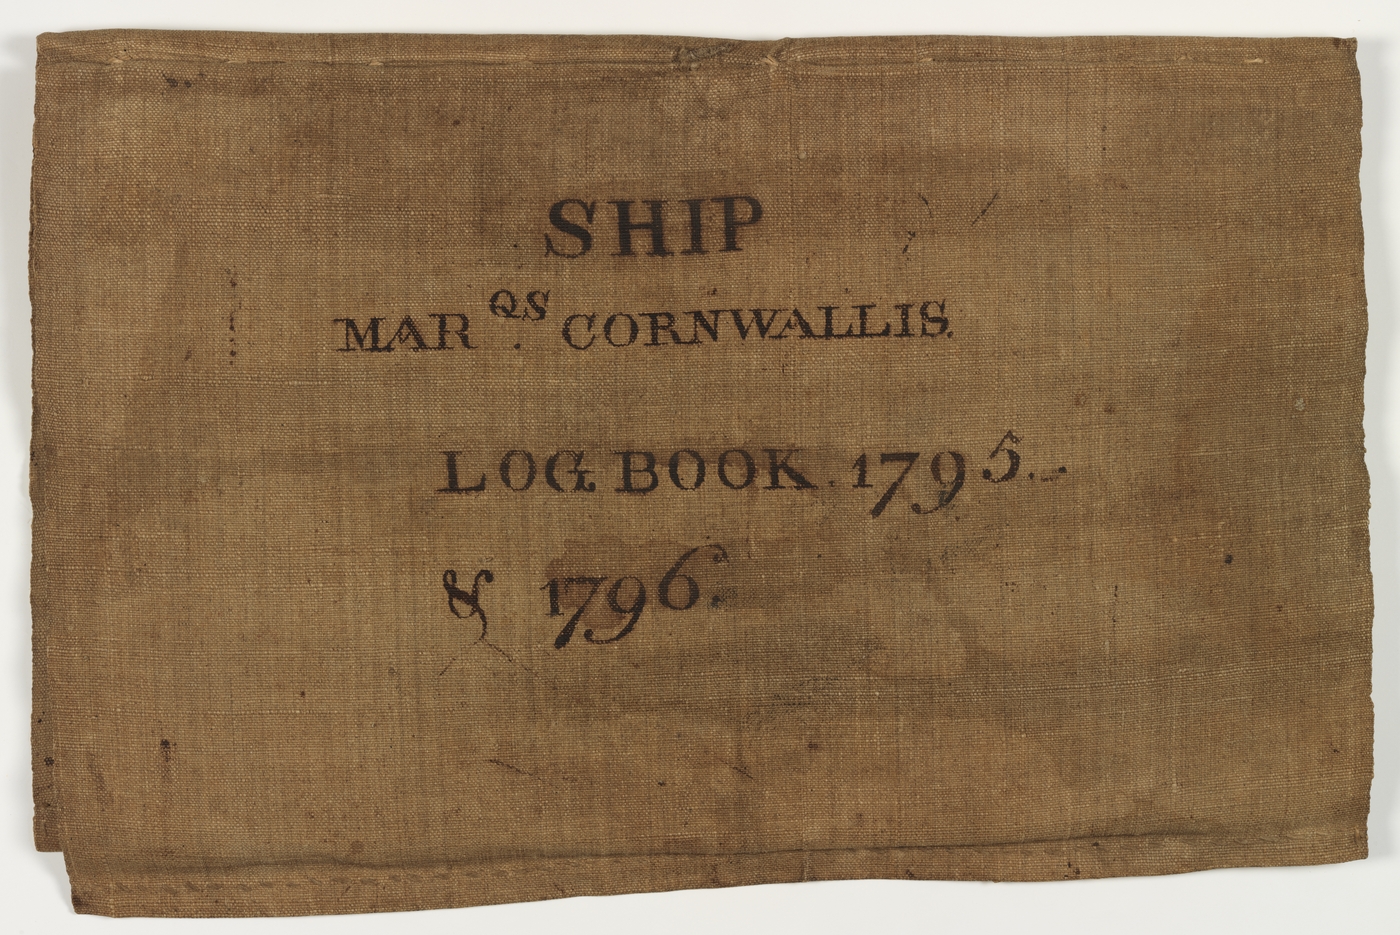 SHIP
MAR QS. CORNWALLIS.
LOG BOOK. 1795.-.
& 1796.